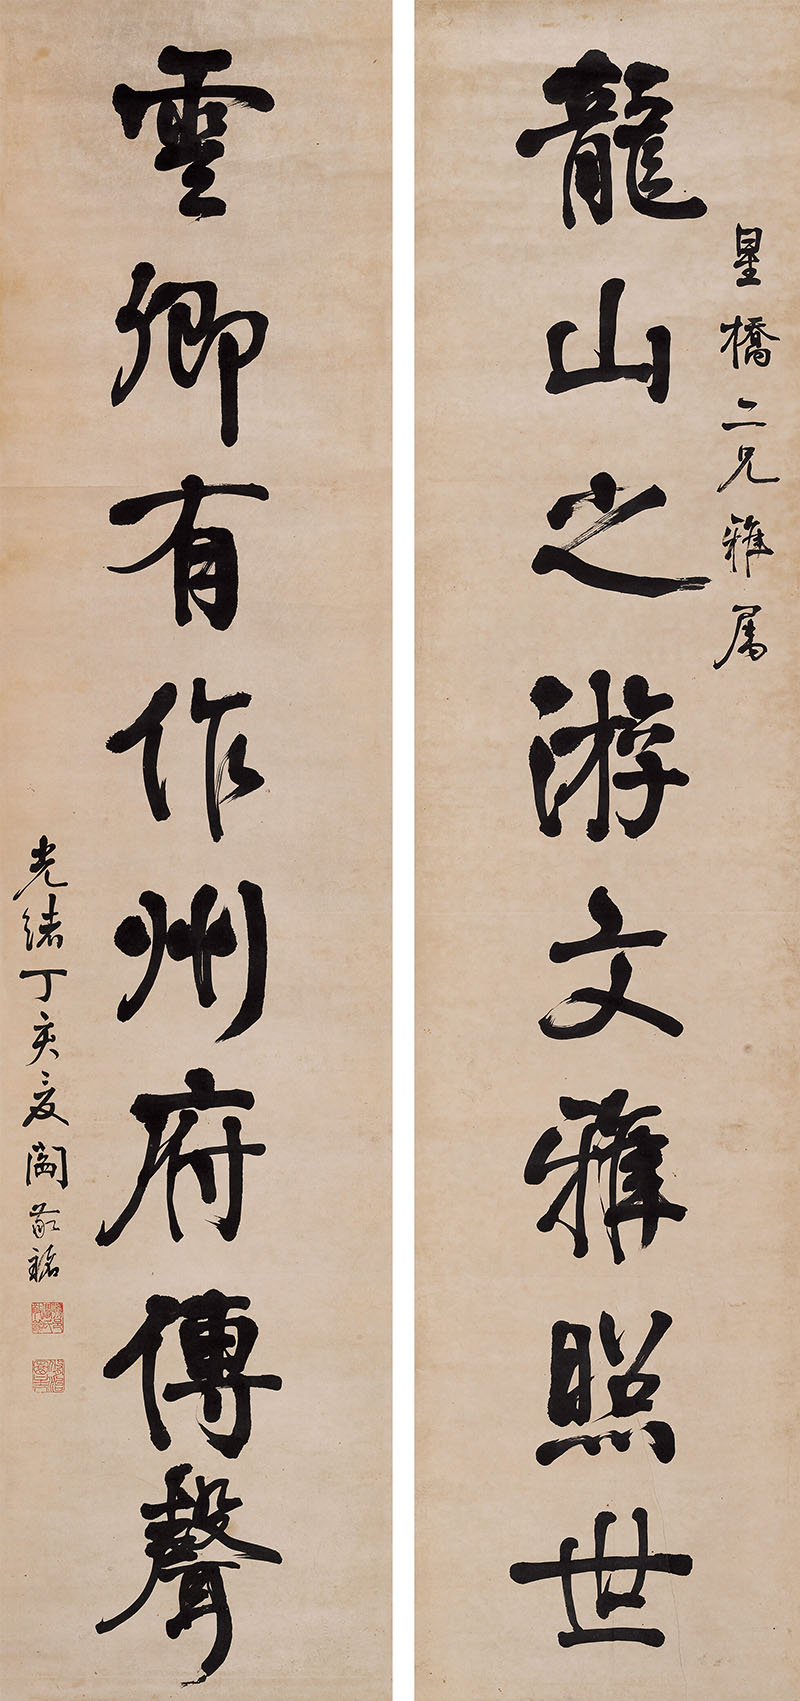 星橋二兄雅属
龍山之游文雅照世
雲卿有作州府傳聲
光緒丁亥夏閻敬銘